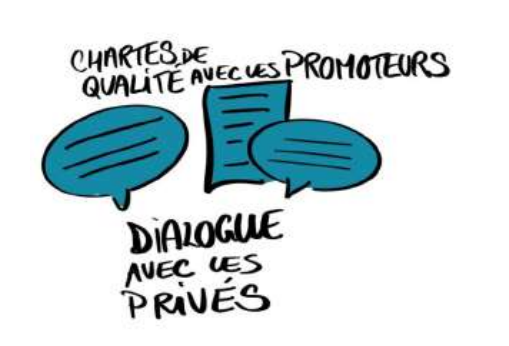 CHARTES DE
QUALITÉ AVEC LES PROMOTEURS
DIALOGUE
AVEC LES
PRIVÉS